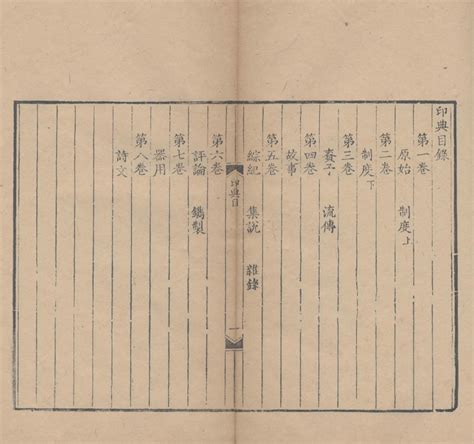 印典目錄
第一卷
原始 制度上
第二卷
制度下
第三卷
賚予 流傳
第四卷
故事
第五卷
綜紀 集說 雜錄
印典目
一
第六卷
評論 鐫製
第七卷
器用
第八卷
詩文